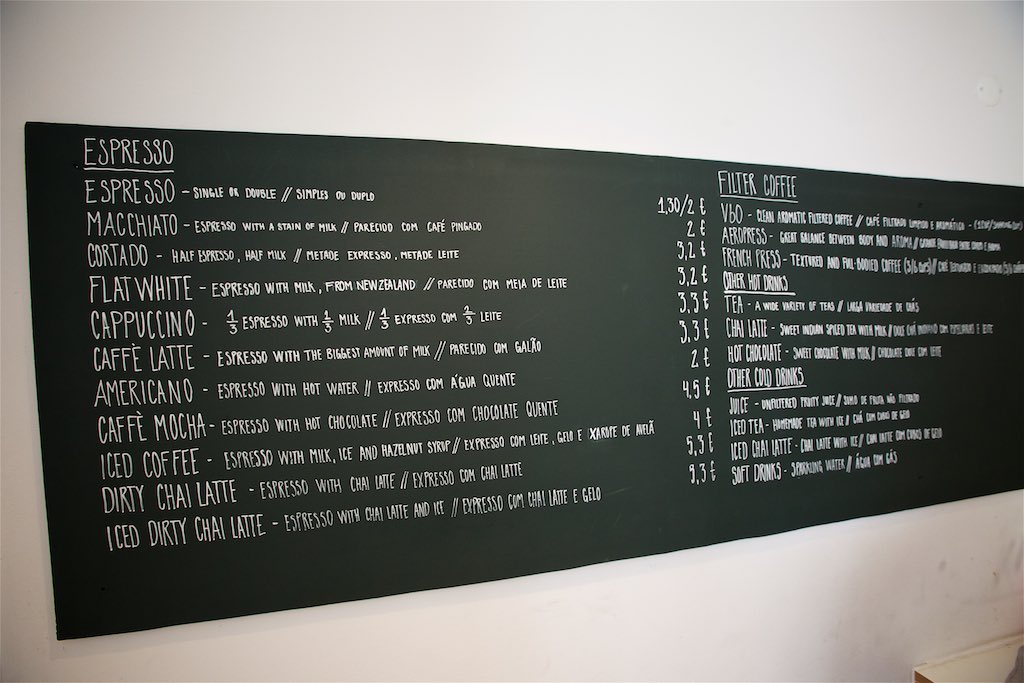 ESPRESSO
ESPRESSO - SINGLE OR DOUBLE // SIMPLES OU DUPLO 1,30/2 €
MACCHIATO - ESPRESSO WITH A STAIN OF MILK // PARECIDO COM CAFÉ PINGADO 2 €
CORTADO - HALF ESPRESSO, HALF MILK // METADE EXPRESSO, METADE LEITE 3,2 €
FLAT WHITE - ESPRESSO WITH MILK, FROM NEW ZEALAND // PARECIDO COM MEIA DE LEITE 3,2 €
CAPPUCCINO - 1/3 ESPRESSO WITH 1/3 MILK // 1/3 EXPRESSO COM 2/3 LEITE 3,3 €
CAFFÈ LATTE - ESPRESSO WITH THE BIGGEST AMOUNT OF MILK // PARECIDO COM GALÃO 3,3 €
AMERICANO - ESPRESSO WITH HOT WATER // EXPRESSO COM ÁGUA QUENTE 2 €
CAFFÈ MOCHA - ESPRESSO WITH HOT CHOCOLATE // EXPRESSO COM CHOCOLATE QUENTE 4,5 €
ICED COFFEE - ESPRESSO WITH MILK, ICE AND HAZELNUT SYRUP // EXPRESSO COM LEITE, GELO E XAROPE DE AVELÃ 4 €
DIRTY CHAI LATTE - ESPRESSO WITH CHAI LATTE // EXPRESSO COM CHAI LATTE 5,3 €
ICED DIRTY CHAI LATTE - ESPRESSO WITH CHAI LATTE AND ICE // EXPRESSO COM CHAI LATTE E GELO
FILTER COFFEE
V60 - CLEAN AROMATIC FILTERED COFFEE // CAFÉ FILTRADO LIMPIDO E AROMÁTICO -
AEROPRESS - GREAT BALANCE BETWEEN BODY AND AROMA //
FRENCH PRESS - TEXTURED AND FULL-BODIED COFFEE // CAFÉ TEXTURADO E
OTHER HOT DRINKS
TEA - A WIDE VARIETY OF TEAS // LARGA VARIEDADE DE CHÁS
CHAI LATTE - SWEET INDIAN SPICED TEA WITH MILK // DOCE CHÁ INDIANO COM E LEITE
HOT CHOCOLATE - SWEET CHOCOLATE WITH MILK // CHOCOLATE DOCE COM LEITE
OTHER COLD DRINKS
JUICE - UNFILTERED FRUITY JUICE // SUMO DE FRUTA NÃO FILTRADO
ICED TEA - HOMEMADE TEA WITH ICE // CHÁ COM CUBOS DE GELO
ICED CHAI LATTE - CHAI LATTE WITH ICE // CHAI LATTE COM CUBOS DE GELO
SOFT DRINKS - SPARKLING WATER // ÁGUA COM GÁS